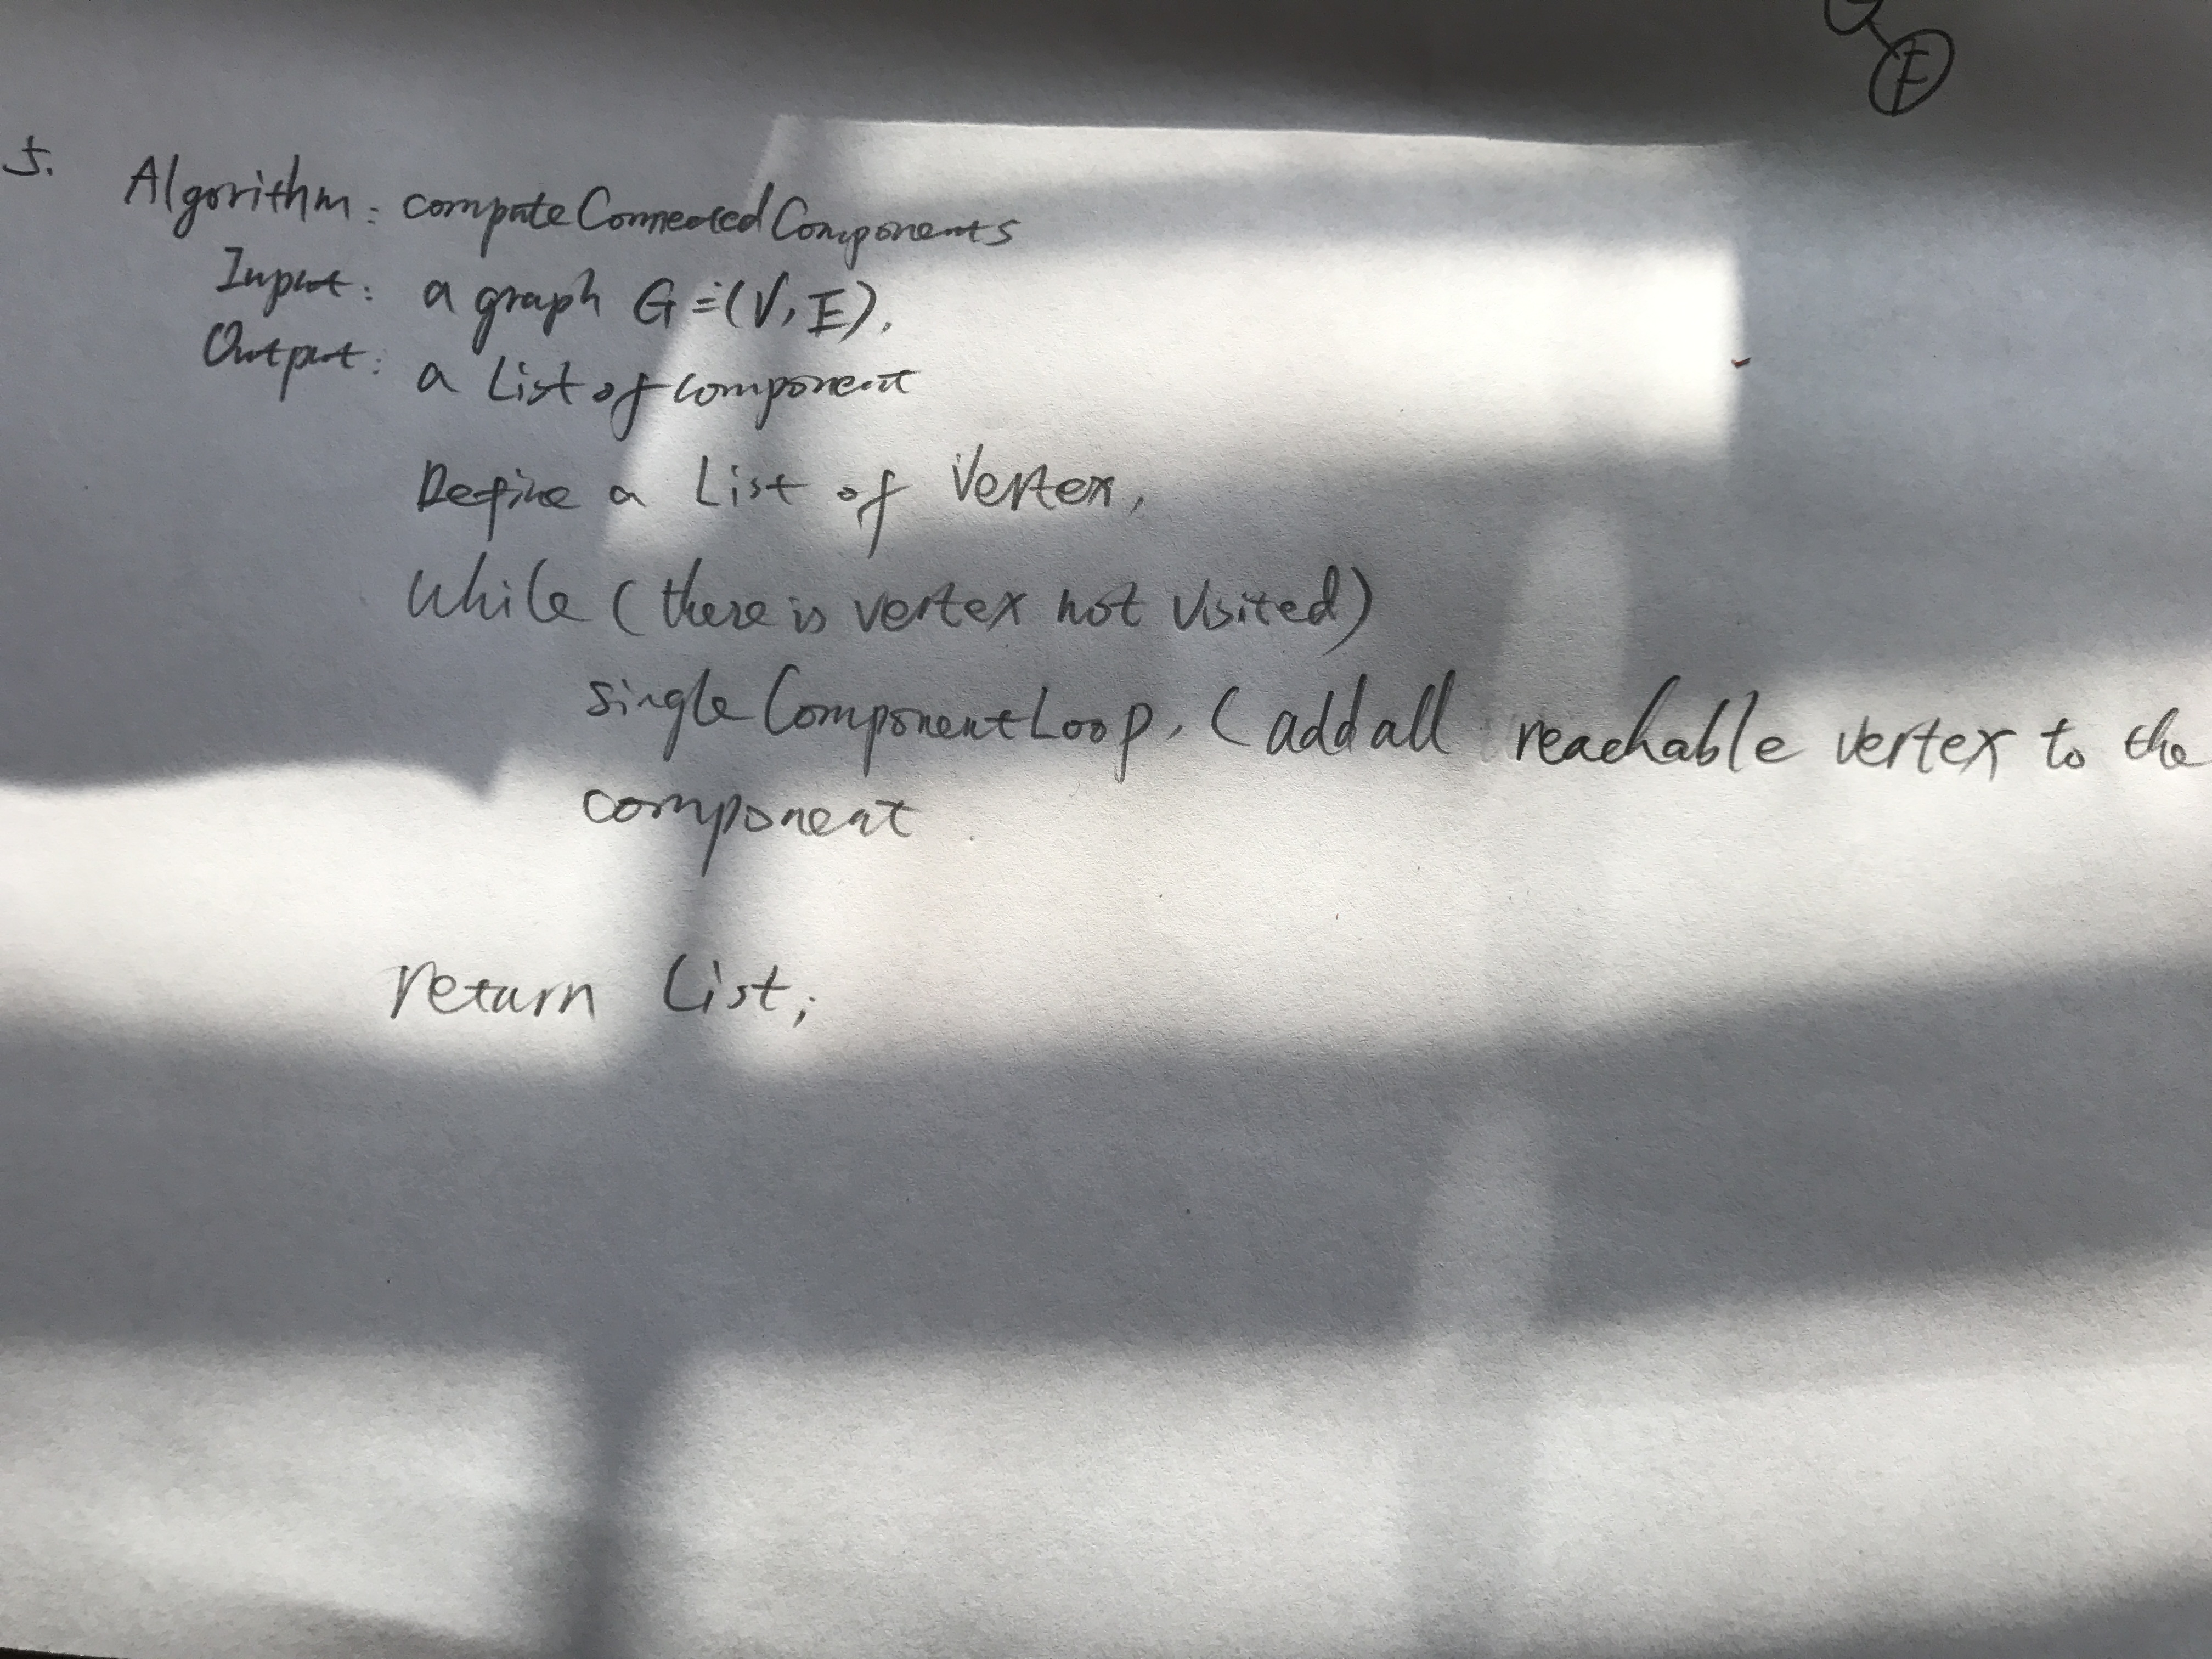 5.
Algorithm: computeConnectedComponents
Input: a graph G=(V,E).
Output: a List of Component
Define a List of Vertex,
while (there is vertex not visited)
singleComponentLoop, (add all reachable vertex to the
component
return List;
E